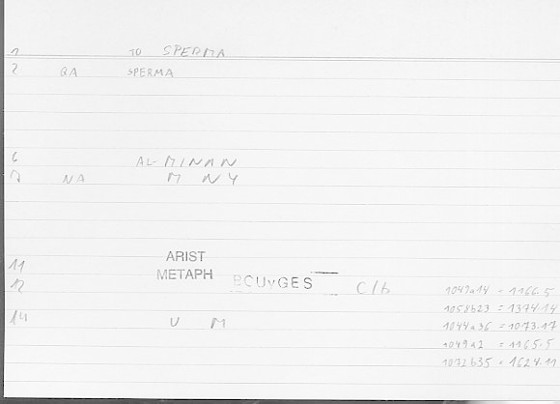 1 TO SPERMA
2 QA SPERMA
6 AL-MINAN
7 NA M N Y
11 ARIST
METAPH
12 BOUYGES C/b
14 U M
1047a14 = 1166.5
1058b23 = 1374.14
1044a36 = 1073.17
1049a2 = 1165.5
1072b35 = 1624.11